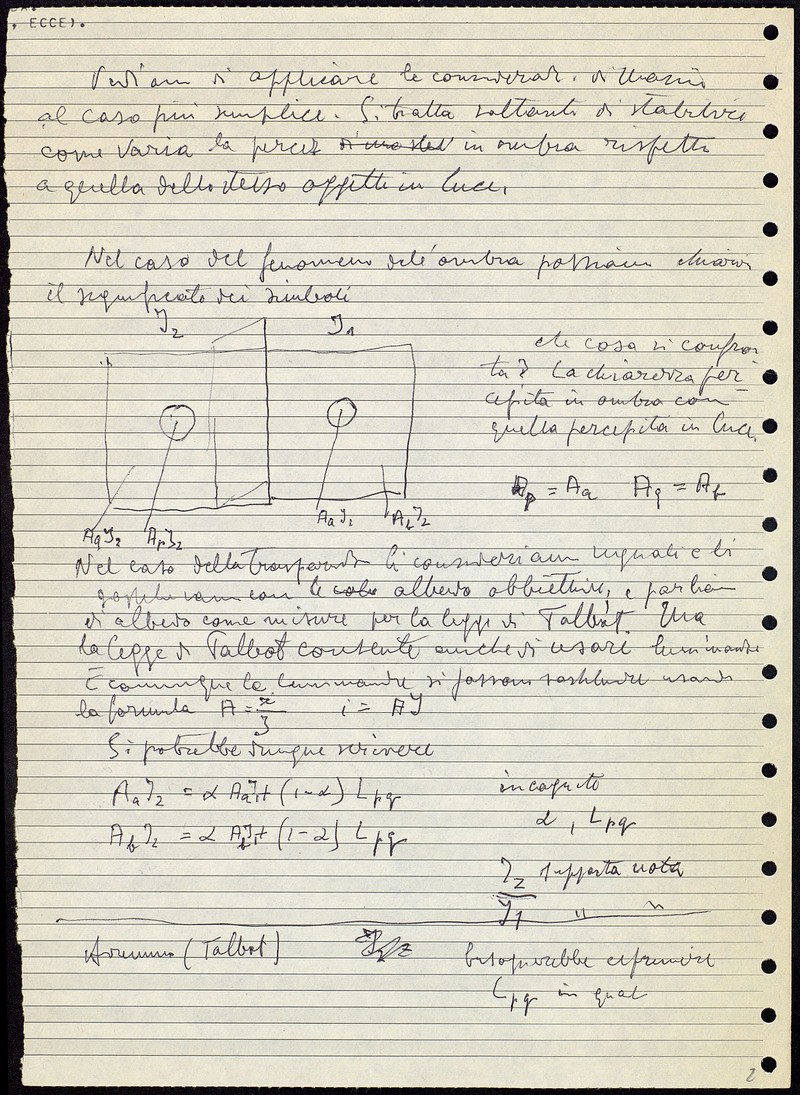 , ECCE).
Vediam di applicare le consideraz. di
al caso più semplice. Si tratta soltanto di stabilire
come varia la percez in ombra rispetto
a quella dello stesso oggetto in luce.
Nel caso del fenomeno dell'ombra possiam chiarire
il significato dei simboli
I2 I1
che cosa si confron
ta? La chiarezza per
cepita in ombra con
quella percepita in luce.
Ap = Aa Aq = Ab
AqI2 ApI2 AaI1 AbI2
Nel caso della trasparenza li consideriam uguali e li
con le albedo obbiettive, e parliam
di albedo come misure per la legge di Talbot Ma
la legge di Talbot consente anche di usare luminanze
E comunque le luminanze si possono sostituire usando
la formula A = i/I i = AI
Si potrebbe dunque scrivere
AaI2 = α AaI1 + (1-α) Lpq
AbI2 = α AbI1 + (1-α) Lpq
incognite
α , Lpq
I2 supposta nota
I1 " "
Avremmo (Talbot)
bisognerebbe esprimere
Lpq in qual
2